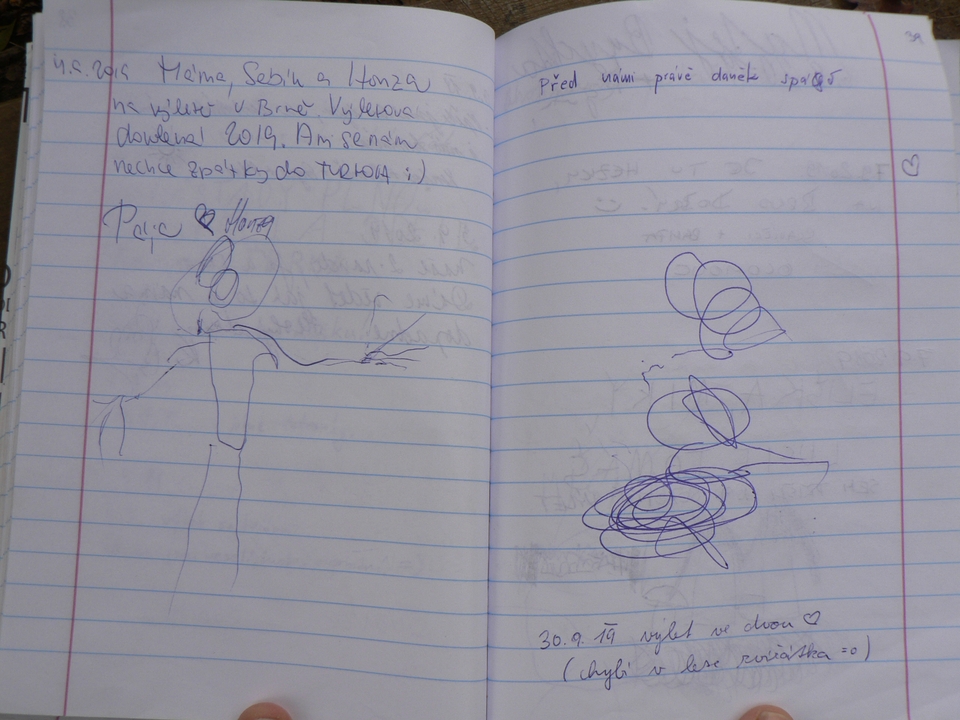 4.9.2019 Máma, Sebík a Honza
na výletě v Brně. Výletová
dovolená 2019. Ani se nám
nechce zpátky do :)
Honza
Před námi právě daněk
39
30.9.19 výlet ve dvou ♡
(chybí v lese zvířátka =o)